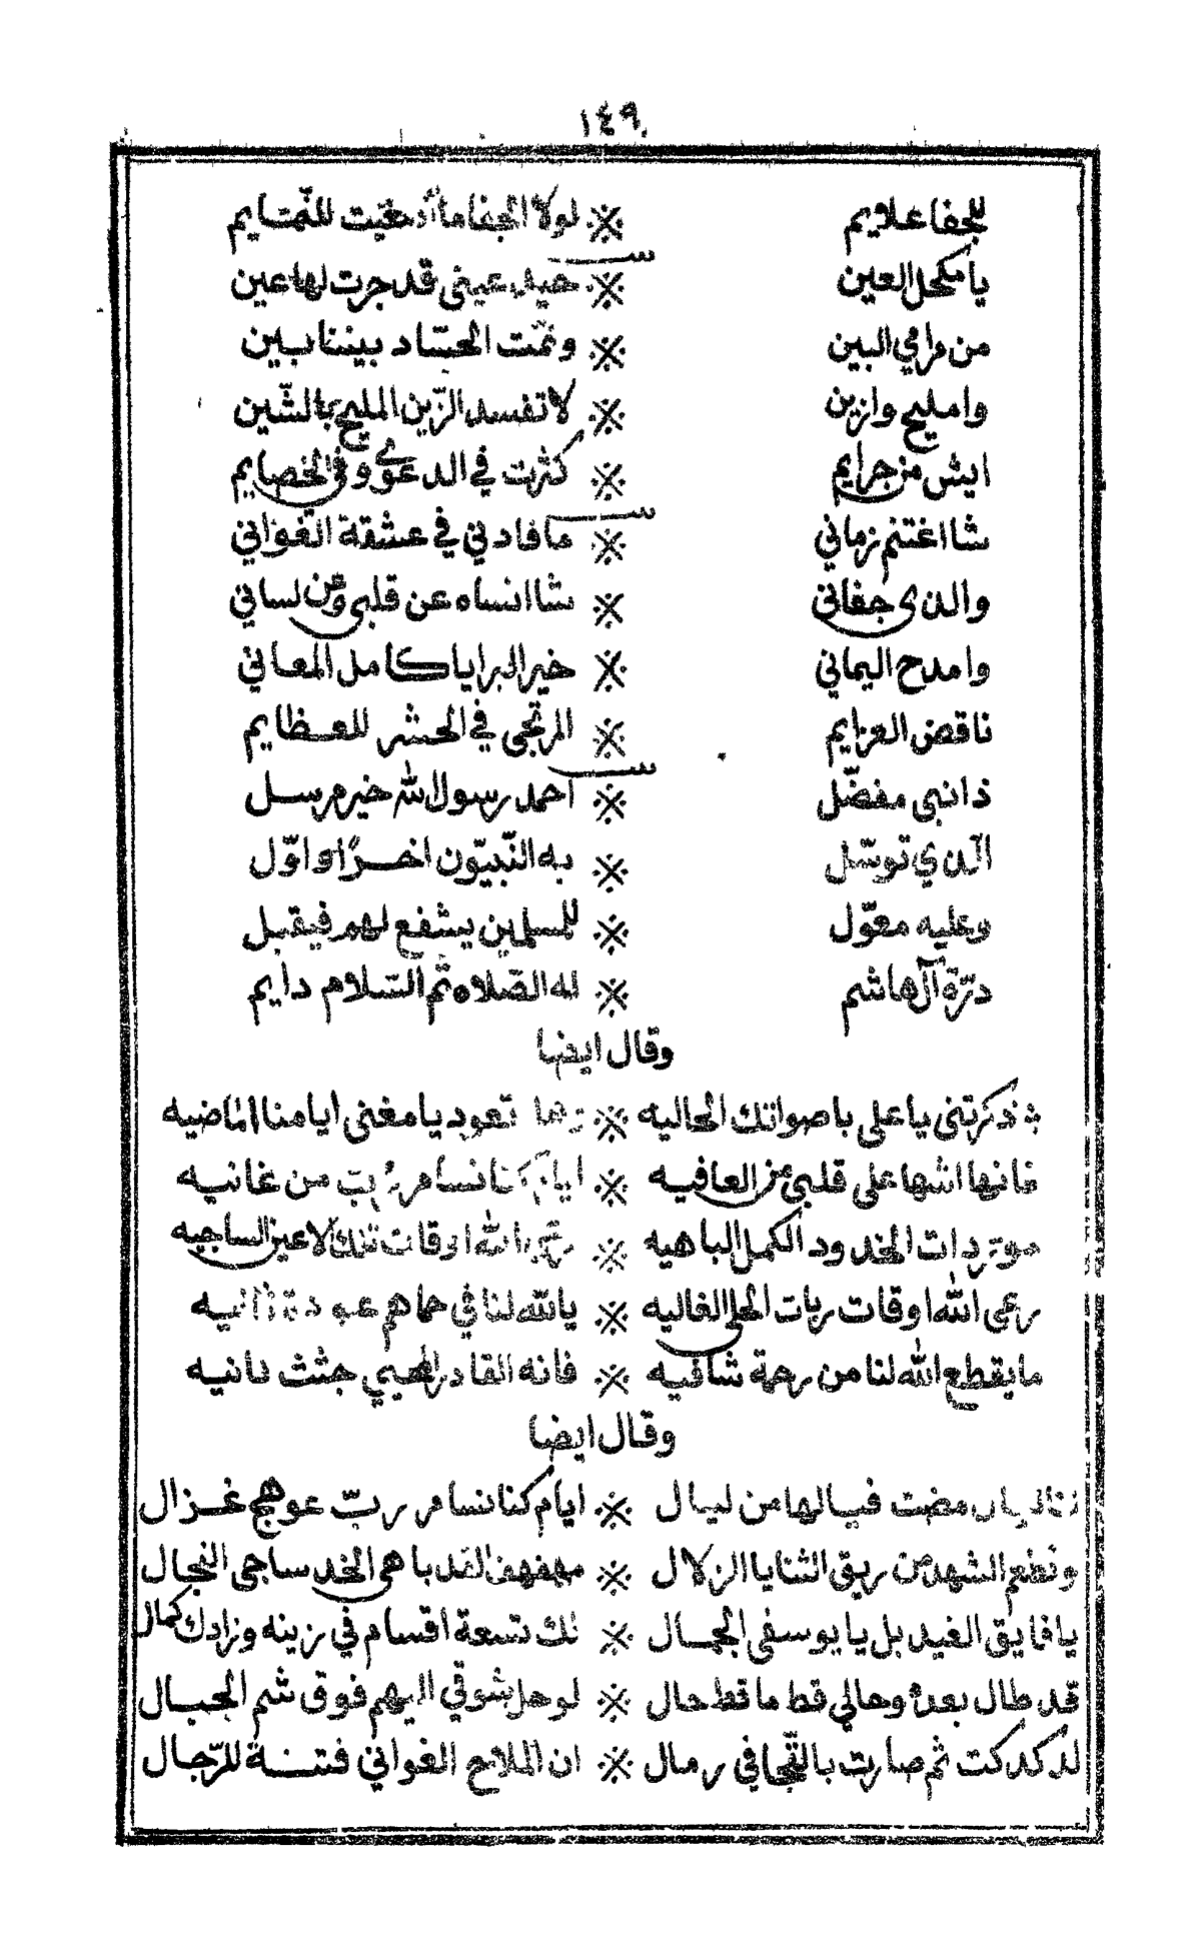 ١٤٩
للجفا علايم ※ لولا الجفا ما أدخلت للنمايم
يا مكحل العين ※ حيد عيني قد جرت لها عين
من مرامي البين ※ ونمّت الحسّاد بيننا بين
وامليح وازين ※ لا تفسد الزّين المليح بالشّين
ايش من جرايم ※ كثرت في الدعوى وفي الخصايم
شا اغتنم زماني ※ ما فادني في عشقة الغواني
والذي جفاني ※ شا انساه عن قلبي وعن لساني
وامدح اليماني ※ خير البرايا كامل المعاني
ناقض العزايم ※ المرتجى في الحشر للعظايم
ذا نبي مفضّل ※ احمد رسول الله خير مرسل
الذي توسّل ※ به النّبيّون اخرًا واوّل
وعليه معوّل ※ للمسلمين يشفع لهم فيقبل
درّة آل هاشم ※ له الصّلاه ثم السّلام دايم
وقال ايضا
ذكرتني يا علي باصواتك الحاليه ※ تعود يا مغنى ايامنا الماضيه
فانها اشها على قلبي من العافيه ※ من غانيه
مورّدات الخدود الكمل الباهيه ※ الله اوقات تلك الاعين الساجيه
رعى الله اوقات ربات الحلى الغاليه ※ يا الله لنا في حماهم عوده ثانيه
ما يقطع الله لنا من رحمة شافيه ※ فانه القادر المحيي جثث فانيه
وقال ايضا
مضت فيالها من ليال ※ ايام كنا نسامر ربّ عوهج غزال
ونطعم الشهد من ريق الثنايا الزلال ※ مهفهف القد باهي الخد ساجي النجال
يا فايق الغيد بل يا يوسفي الجمال ※ لك تسعة اقسام في زينه وزادك كمال
قد طال بعده وحالي قط ما قط حال ※ لو حل شوقي اليهم فوق شم الجبال
لدكدكت ثم صارت بالتّجافي رمال ※ ان الملاح الغواني فتنة للرّجال